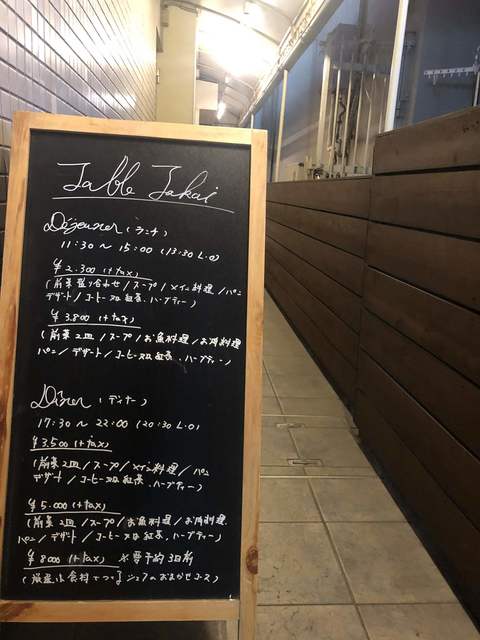 Table Takai
Déjeuner (ランチ)
11:30 ～ 15:00 (13:30 L.O)
¥2.300 (+tax)
(前菜盛り合わせ/スープ/メイン料理/パン/
デザート/コーヒー又は紅茶、ハーブティー)
¥3.800 (+tax)
(前菜2皿/スープ/お魚料理/お肉料理
パン/デザート/コーヒー又は紅茶、ハーブティー)
Dîner (ディナー)
17:30 ～ 22:00 (20:30 L.O)
¥3,500 (+tax)
(前菜2皿/スープ/メイン料理/パン
デザート/コーヒー又は紅茶、ハーブティー)
¥5.000 (+tax)
(前菜2皿/スープ/お魚料理/お肉料理、
パン/デザート/コーヒー又は紅茶、ハーブティー)
¥8000 (+tax) ※要予約3日前
(厳選した食材でつくるシェフのおまかせコース)